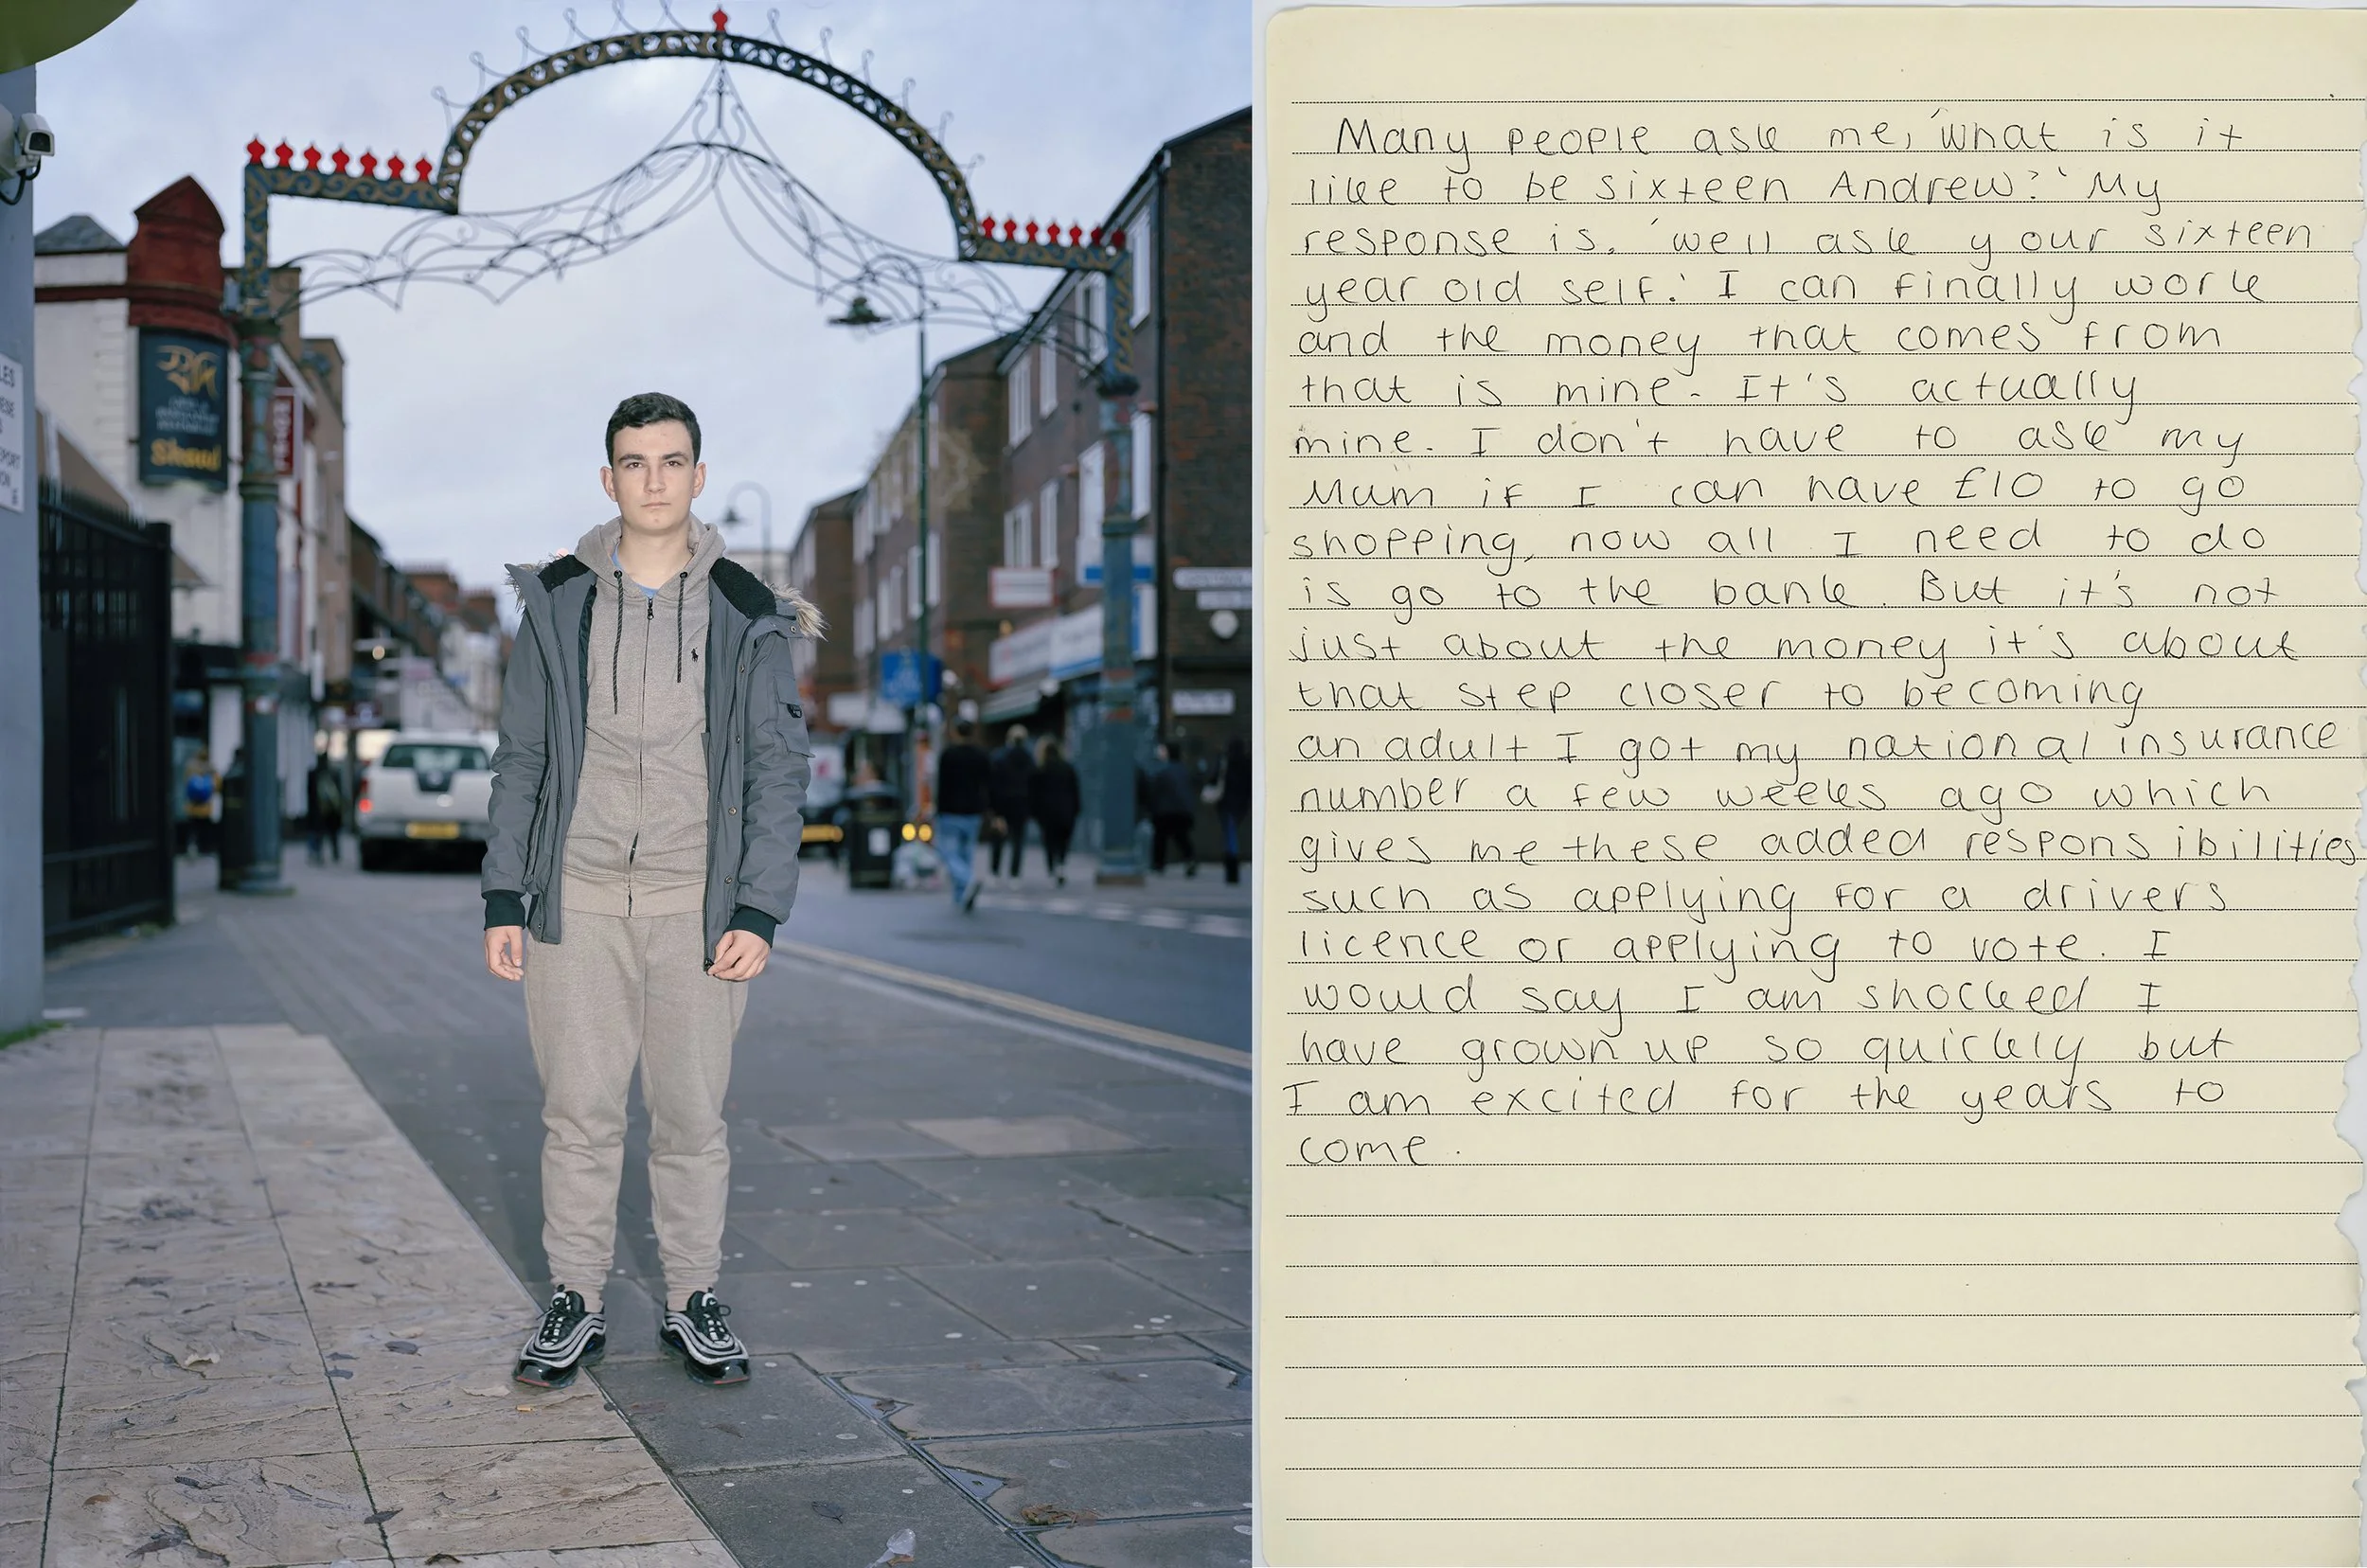 Shaad
Many people ask me, 'what is it
like to be sixteen Andrew?' My
response is, 'well ask your sixteen
year old self.' I can finally work
and the money that comes from
that is mine. It's actually
mine. I don't have to ask my
Mum if I can have £10 to go
shopping, now all I need to do
is go to the bank. But it's not
just about the money it's about
that step closer to becoming
an adult I got my national insurance
number a few weeks ago which
gives me these added responsibilities
such as applying for a drivers
licence or applying to vote. I
would say I am shocked I
have grown up so quickly but
I am excited for the years to
come.